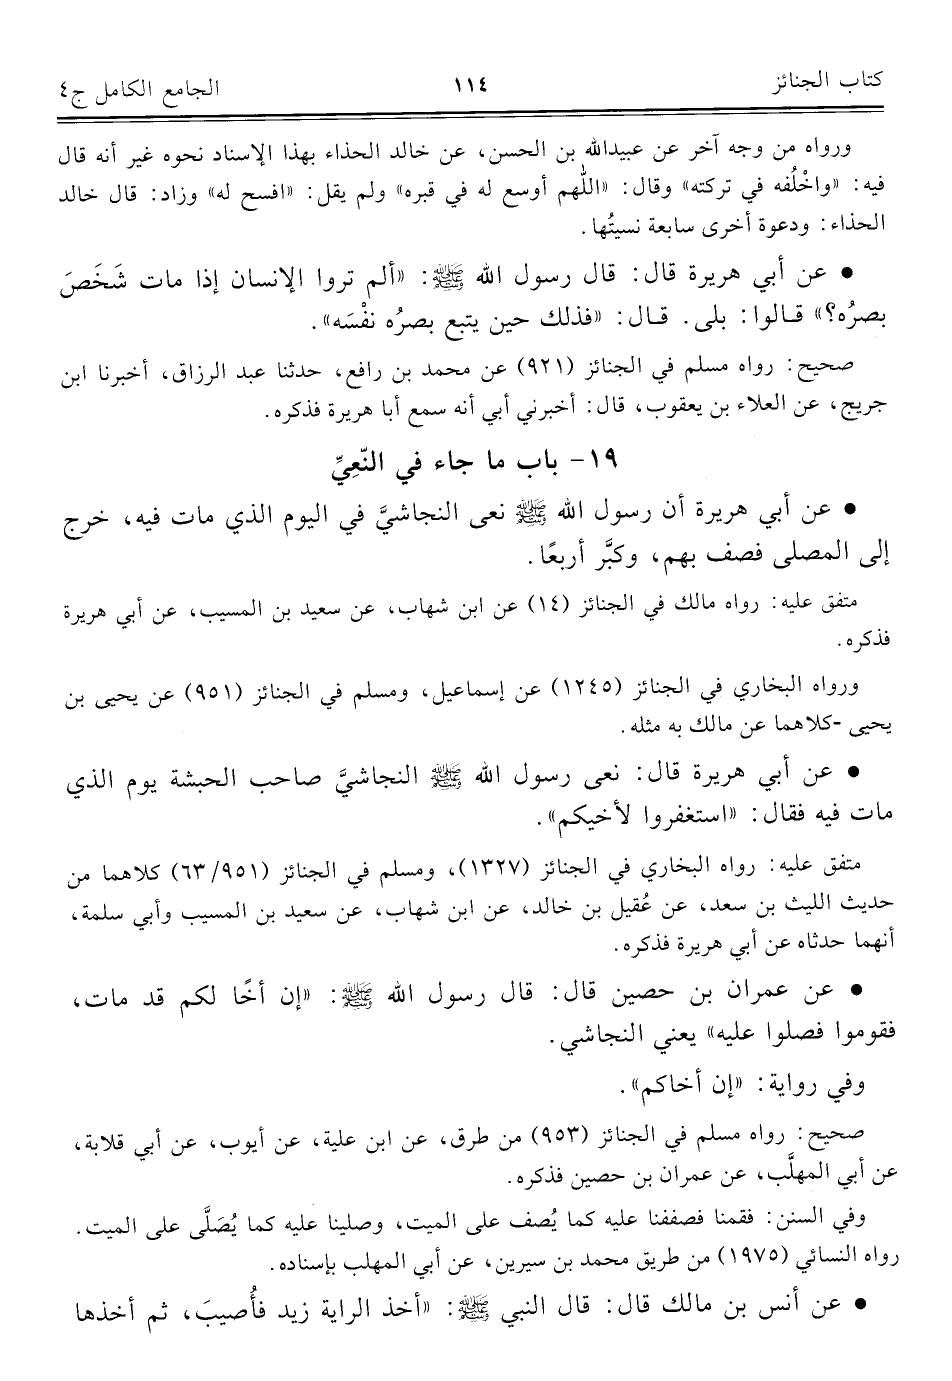 كتاب الجنائز ١١٤ الجامع الكامل ج٤
ورواه من وجه آخر عن عبيدالله بن الحسن، عن خالد الحذاء بهذا الإسناد نحوه غير أنه قال
فيه: «واخْلُفه في تركته» وقال: «اللّهم أوسع له في قبره» ولم يقل: «افسح له» وزاد: قال خالد
الحذاء: ودعوة أخرى سابعة نسيتُها.
● عن أبي هريرة قال: قال رسول الله ﷺ: «ألم تروا الإنسان إذا مات شَخَصَ
بصرُه؟» قالوا: بلى. قال: «فذلك حين يتبع بصرُه نفْسَه».
صحيح: رواه مسلم في الجنائز (٩٢١) عن محمد بن رافع، حدثنا عبد الرزاق، أخبرنا ابن
جريج، عن العلاء بن يعقوب، قال: أخبرني أبي أنه سمع أبا هريرة فذكره.
١٩- باب ما جاء في النّعِيِّ
● عن أبي هريرة أن رسول الله ﷺ نعى النجاشيَّ في اليوم الذي مات فيه، خرج
إلى المصلى فصف بهم، وكبَّر أربعًا.
متفق عليه: رواه مالك في الجنائز (١٤) عن ابن شهاب، عن سعيد بن المسيب، عن أبي هريرة
فذكره.
ورواه البخاري في الجنائز (١٢٤٥) عن إسماعيل، ومسلم في الجنائز (٩٥١) عن يحيى بن
يحيى -كلاهما عن مالك به مثله.
● عن أبي هريرة قال: نعى رسول الله ﷺ النجاشيَّ صاحب الحبشة يوم الذي
مات فيه فقال: «استغفروا لأخيكم».
متفق عليه: رواه البخاري في الجنائز (١٣٢٧)، ومسلم في الجنائز (٦٣/٩٥١) كلاهما من
حديث الليث بن سعد، عن عُقيل بن خالد، عن ابن شهاب، عن سعيد بن المسيب وأبي سلمة،
أنهما حدثاه عن أبي هريرة فذكره.
● عن عمران بن حصين قال: قال رسول الله ﷺ: «إن أخًا لكم قد مات،
فقوموا فصلوا عليه» يعني النجاشي.
وفي رواية: «إن أخاكم».
صحيح: رواه مسلم في الجنائز (٩٥٣) من طرق، عن ابن علية، عن أيوب، عن أبي قلابة،
عن أبي المهلَّب، عن عمران بن حصين فذكره.
وفي السنن: فقمنا فصففنا عليه كما يُصف على الميت، وصلينا عليه كما يُصَلَّى على الميت.
رواه النسائي (١٩٧٥) من طريق محمد بن سيرين، عن أبي المهلب بإسناده.
● عن أنس بن مالك قال: قال النبي ﷺ: «أخذ الراية زيد فأُصيبَ، ثم أخذها